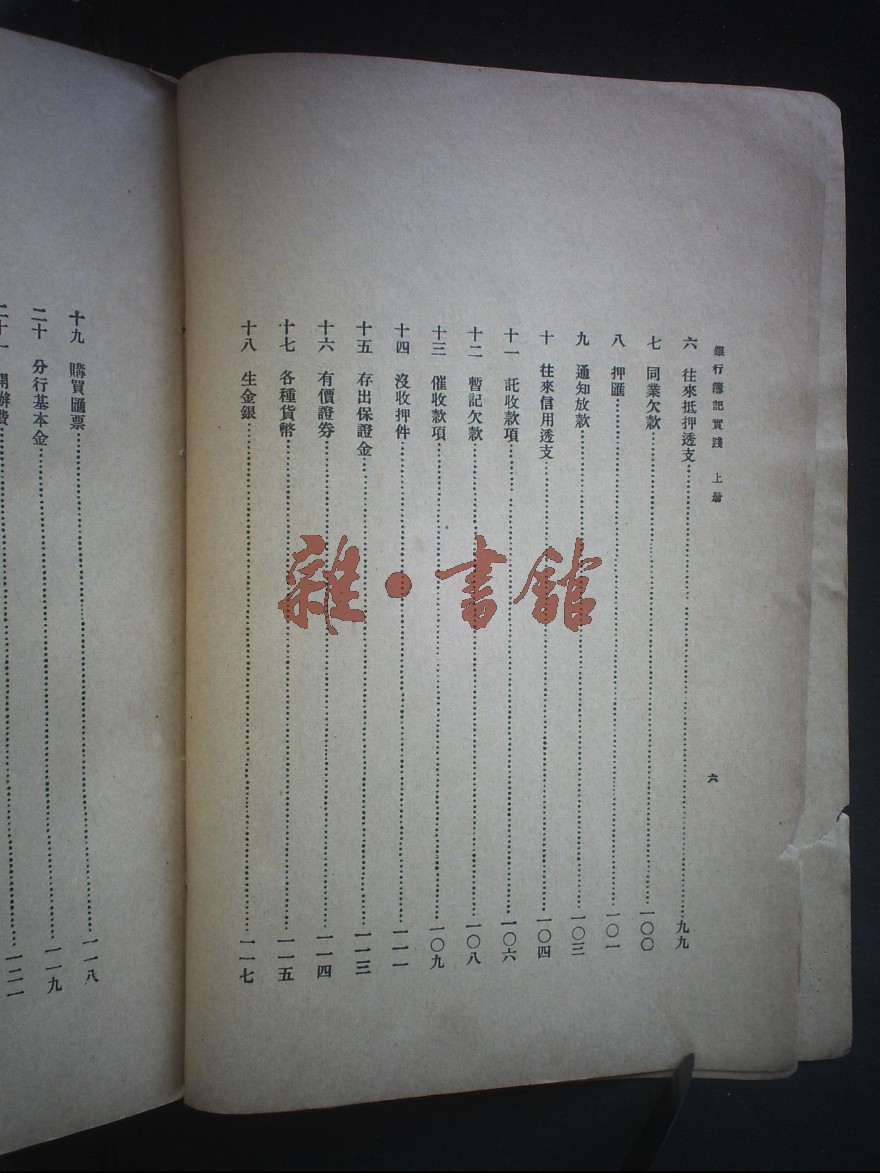 銀行簿記實踐　上册
六
六　往來抵押透支……九九
七　同業欠款……一〇〇
八　押匯……一〇一
九　通知放款……一〇三
十　往來信用透支……一〇四
十一　託收款項……一〇六
十二　暫記欠款……一〇八
十三　催收款項……一〇九
十四　沒收押件……一一一
十五　存出保證金……一一三
十六　有價證券……一一四
十七　各種貨幣……一一五
十八　生金銀……一一七
十九　購買匯票……一一八
二十　分行基本金……一一九
二十一　開辦費……一二一
雜·書館